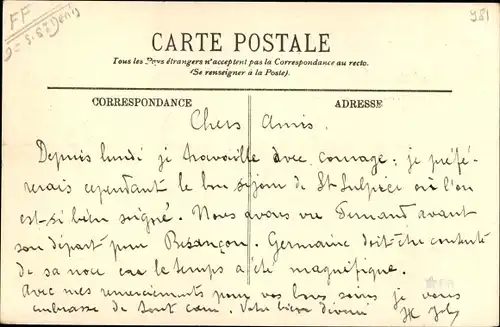 FF
S. St Denis
981
CARTE POSTALE
Tous les Pays étrangers n'acceptent pas la Correspondance au recto.
(Se renseigner à la Poste).
CORRESPONDANCE
ADRESSE
Chers Amis.
Depuis lundi je travaille avec courage; je préfé-
rerais cependant le bon séjour de St Sulpice où l'on
est si bien soigné. Nous avons vu Fernand avant
son départ pour Besançon. Germaine doit être contente
de sa noce car le temps a été magnifique.
Avec mes remerciements pour vos bons soins je vous
embrasse de tout cœur. Votre bien dévoué